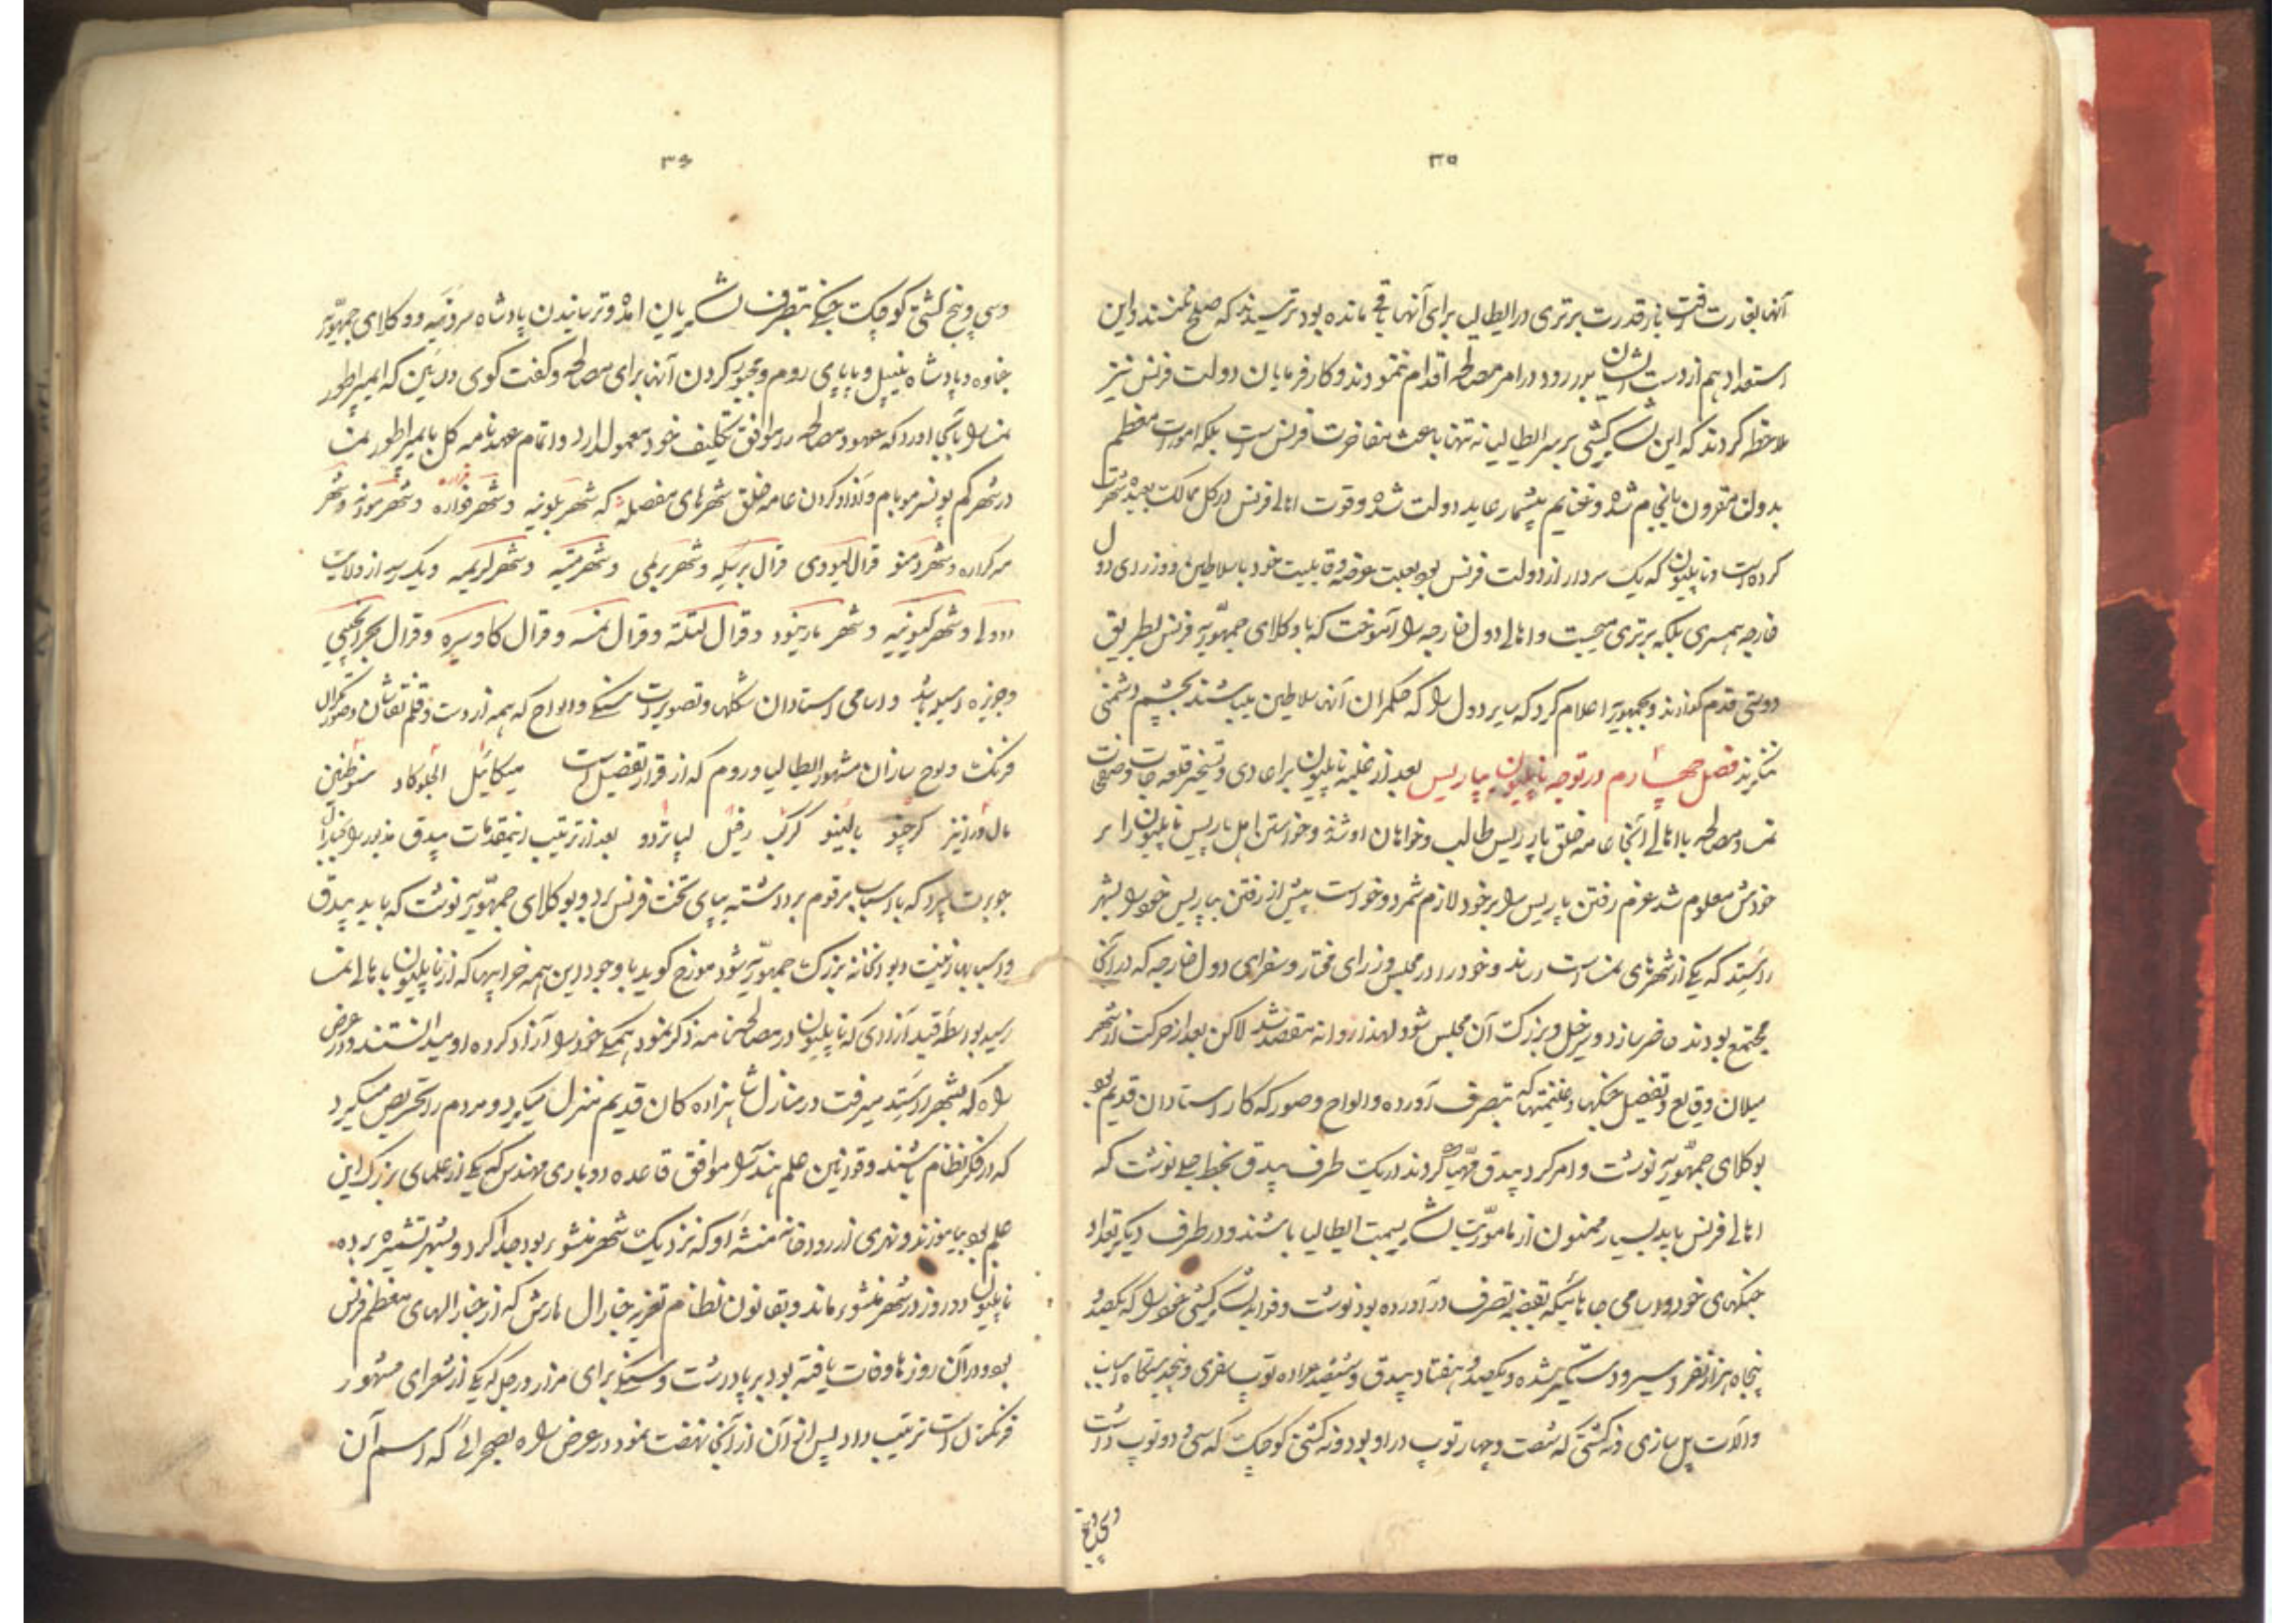 ۳۵
آنها بغارت رفت باز قدرت برتری در ایطالیا برای آنها باقی مانده بود ترسیدند که صلح نکنند و این
استعداد هم از دست ایشان بدر رود در امر مصالحه اقدام نمودند و کارفرمایان دولت فرنس نیز
ملاحظه کردند که این لشکرکشی بر سر ایطالیا نه تنها باعث مفاخرت فرنس است بلکه امورات معظم
بدولت مقرون بانجام شده و غنایم بیشمار عاید دولت شده و قوت اهالی فرنس در کل ممالک بعیده شهرت
کرده است و ناپلیون که یک سردار از دولت فرنس بود بعلت عرضه و قابلیت خود با سلاطین و وزرای دول
خارجه همسری بلکه برتری میجست و اهالی دول خارجه را آموخت که با وکلای جمهوریه فرنس بطریق
دوستی قدم گذارند و بجمهوریه اعلام کرد که سایر دول را که حکمران آنها سلاطین میباشند بچشم دشمنی
ننگرند فصل چهارم در توجه ناپلیون بپاریس بعد از غلبه ناپلیون بر اعادی و تسخیر قلعه جات و صفحات
نمسا و مصالحه با اهالی آنجا عامه خلق پاریس طالب و خواهان او شد و خواستن اهل پاریس ناپلیون را بر
خودش معلوم شد عزم رفتن پاریس را بر خود لازم شمرد و خواست پیش از رفتن بپاریس خود را بشهر
راستد که یکی از شهرهای نمسا است رساند و خود را در مجلس وزرای مختار و سفرای دول خارجه که در آنجا
مجتمع بودند حاضر سازد و دخیل و بزرگ آن مجلس شود لهذا روانه مقصد شد لاکن بعد از حرکت از شهر
میلان وقایع و تفصیل جنگها و غنیمتها که بتصرف آورده و الواح و صور که کار استادان قدیم بود
بوکلای جمهوریه نوشت و امر کرد بیدق مهیا کردند در یک طرف بیدق بخط جلی نوشت که
اهالی فرنس باید بسیار ممنون از مأموریت لشکر بسمت ایطالیا باشند و در طرف دیگر تعداد
جنگهای خود و اسامی جاهائیکه بقبضه تصرف در آورده بود نوشت و فواید لشکرکشی خود را که یکصد و
پنجاه هزار نفر اسیر و دستگیر شده و یکصد و هفتاد بیدق و ششصد عراده توپ سفری و پنج دستگاه اسباب
و آلات پل سازی و نه کشتی که شصت و چهار توپ در او بود و نه کشتی کوچک که سی و دو توپ داشت
وسی و پنج
۳۶
وسی و پنج کشتی کوچک جنگی بتصرف لشکریان آمد و ترسانیدن پادشاه سردنیه و وکلای جمهوریه
جناوه و پادشاه نیپل و پاپای روم و مجبور کردن آنها برای مصالحه و گفت گوی در بین که ایمپراطور
نمسا را بآنجا آورد که عهود مصالحه را موافق تکلیف خود معمول دارد و اتمام عهدنامه کل با ایمپراطور نمسا
در شهر کم پونسرمو بام و آزاد کردن عامه خلق شهرهای مفصله که شهر بلونیه و شهر فراره و شهر مودنه و شهر
مه کراره و شهر و قرال لیوودی قرال بریکه و شهر برلمی و شهر و شهر کریمه و یک از ولایت
و شهر کیونیه و شهر و قرال لتکته و قرال نمسه و قرال کاوسیره و قرال بحر
و جزیره باشد و اسامی استادان شکلها و تصویرات سنگی و الواح که همه از دست و قلم نقاشان و صورتگران
فرنگ و لوح سازان مشهور ایطالیا و روم که از قرار تفصیل است میکائیل انجلو کاد
کرچنو بالینو کرک رفیل لیاتردو بعد از ترتیب اینمقدمات بیدق مذبور را بجنرال
جوبرت سپرد که با اسباب مرقوم برداشته بپای تخت فرنس برد و بوکلای جمهوریه نوشت که باید بیدق
و اسباب زینت دیوانخانه بزرگ جمهوریه شود مورخ گوید با وجود این همه خرابیها که از ناپلیون باهالی نمسا
رسید بواسطه قید آزادی که ناپلیون در مصالحه نامه ذکر نمود همگی خود را آزاد کرده او میدانستند و در عرض
راه که بشهر راستد میرفت در منازل شاهزاده کان قدیم منزل میکرد و مردم را تحریص میکرد
که در فکر نظام باشند و قوانین علم هندسه را موافق قاعده مهندس که یکی از علمای بزرگ این
علم بود بیاموزند و نهری از رودخانه منشأ او که نزدیک شهر منشو بود جدا کرد و بشهر برده
ناپلیون دو روز در شهر منشو بماند و بقانون نظام تعزیه جنرال مارش که از جنرالهای معظم فرنس
بود و در آن روزها وفات یافته بود برپا داشت و سنگی برای مزار ورجل که یکی از شعرای مشهور
فرنگستان است ترتیب داد پس از آن از آنجا نهضت نمود در عرض راه بصحرائی که اسم آن